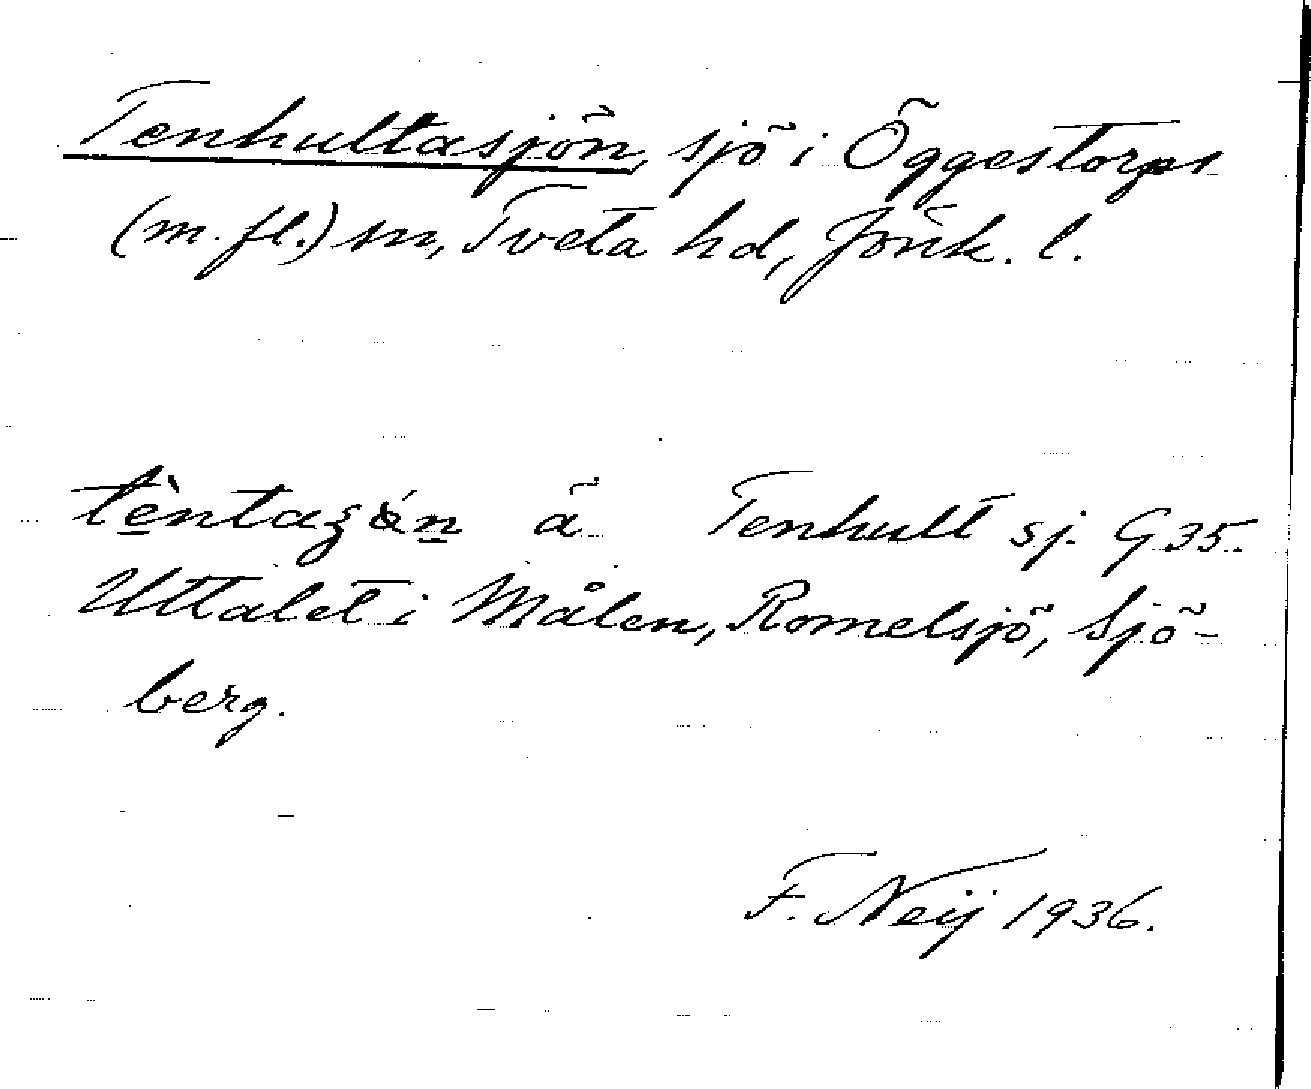 Tenhultasjön, sjö i Öggestorps
(m. fl.) sn, Tveta hd, Jönk. l.
ä Tenhult sj. G 35.
Uttalet i Målen, Romelsjö, Sjö-
berg.
F. Neij 1936.